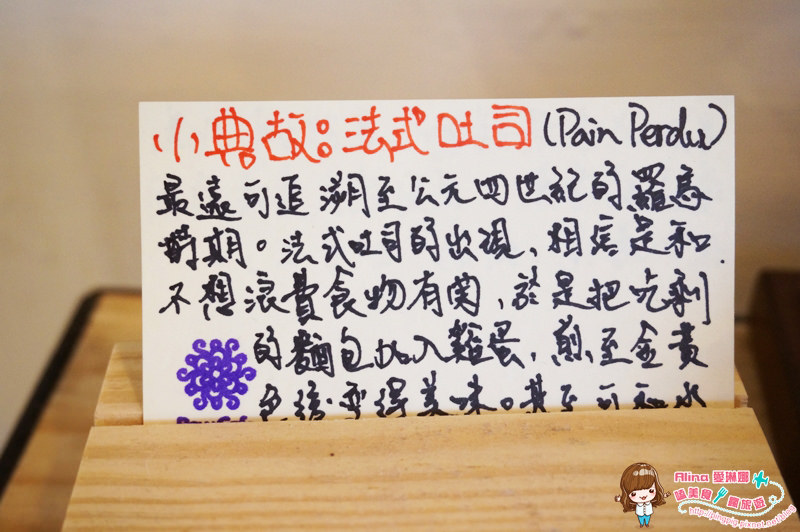 小典故：法式吐司 (Pain Perdu)
最遠可追溯至公元四世紀的羅馬
時期。法式吐司的出現，相信是和
不想浪費食物有関，於是把吃剩
的麵包加入雞蛋，煎至金黃
色後變得美味。甚至可和水
Alina 愛琳娜
嗑美食 瘋旅遊